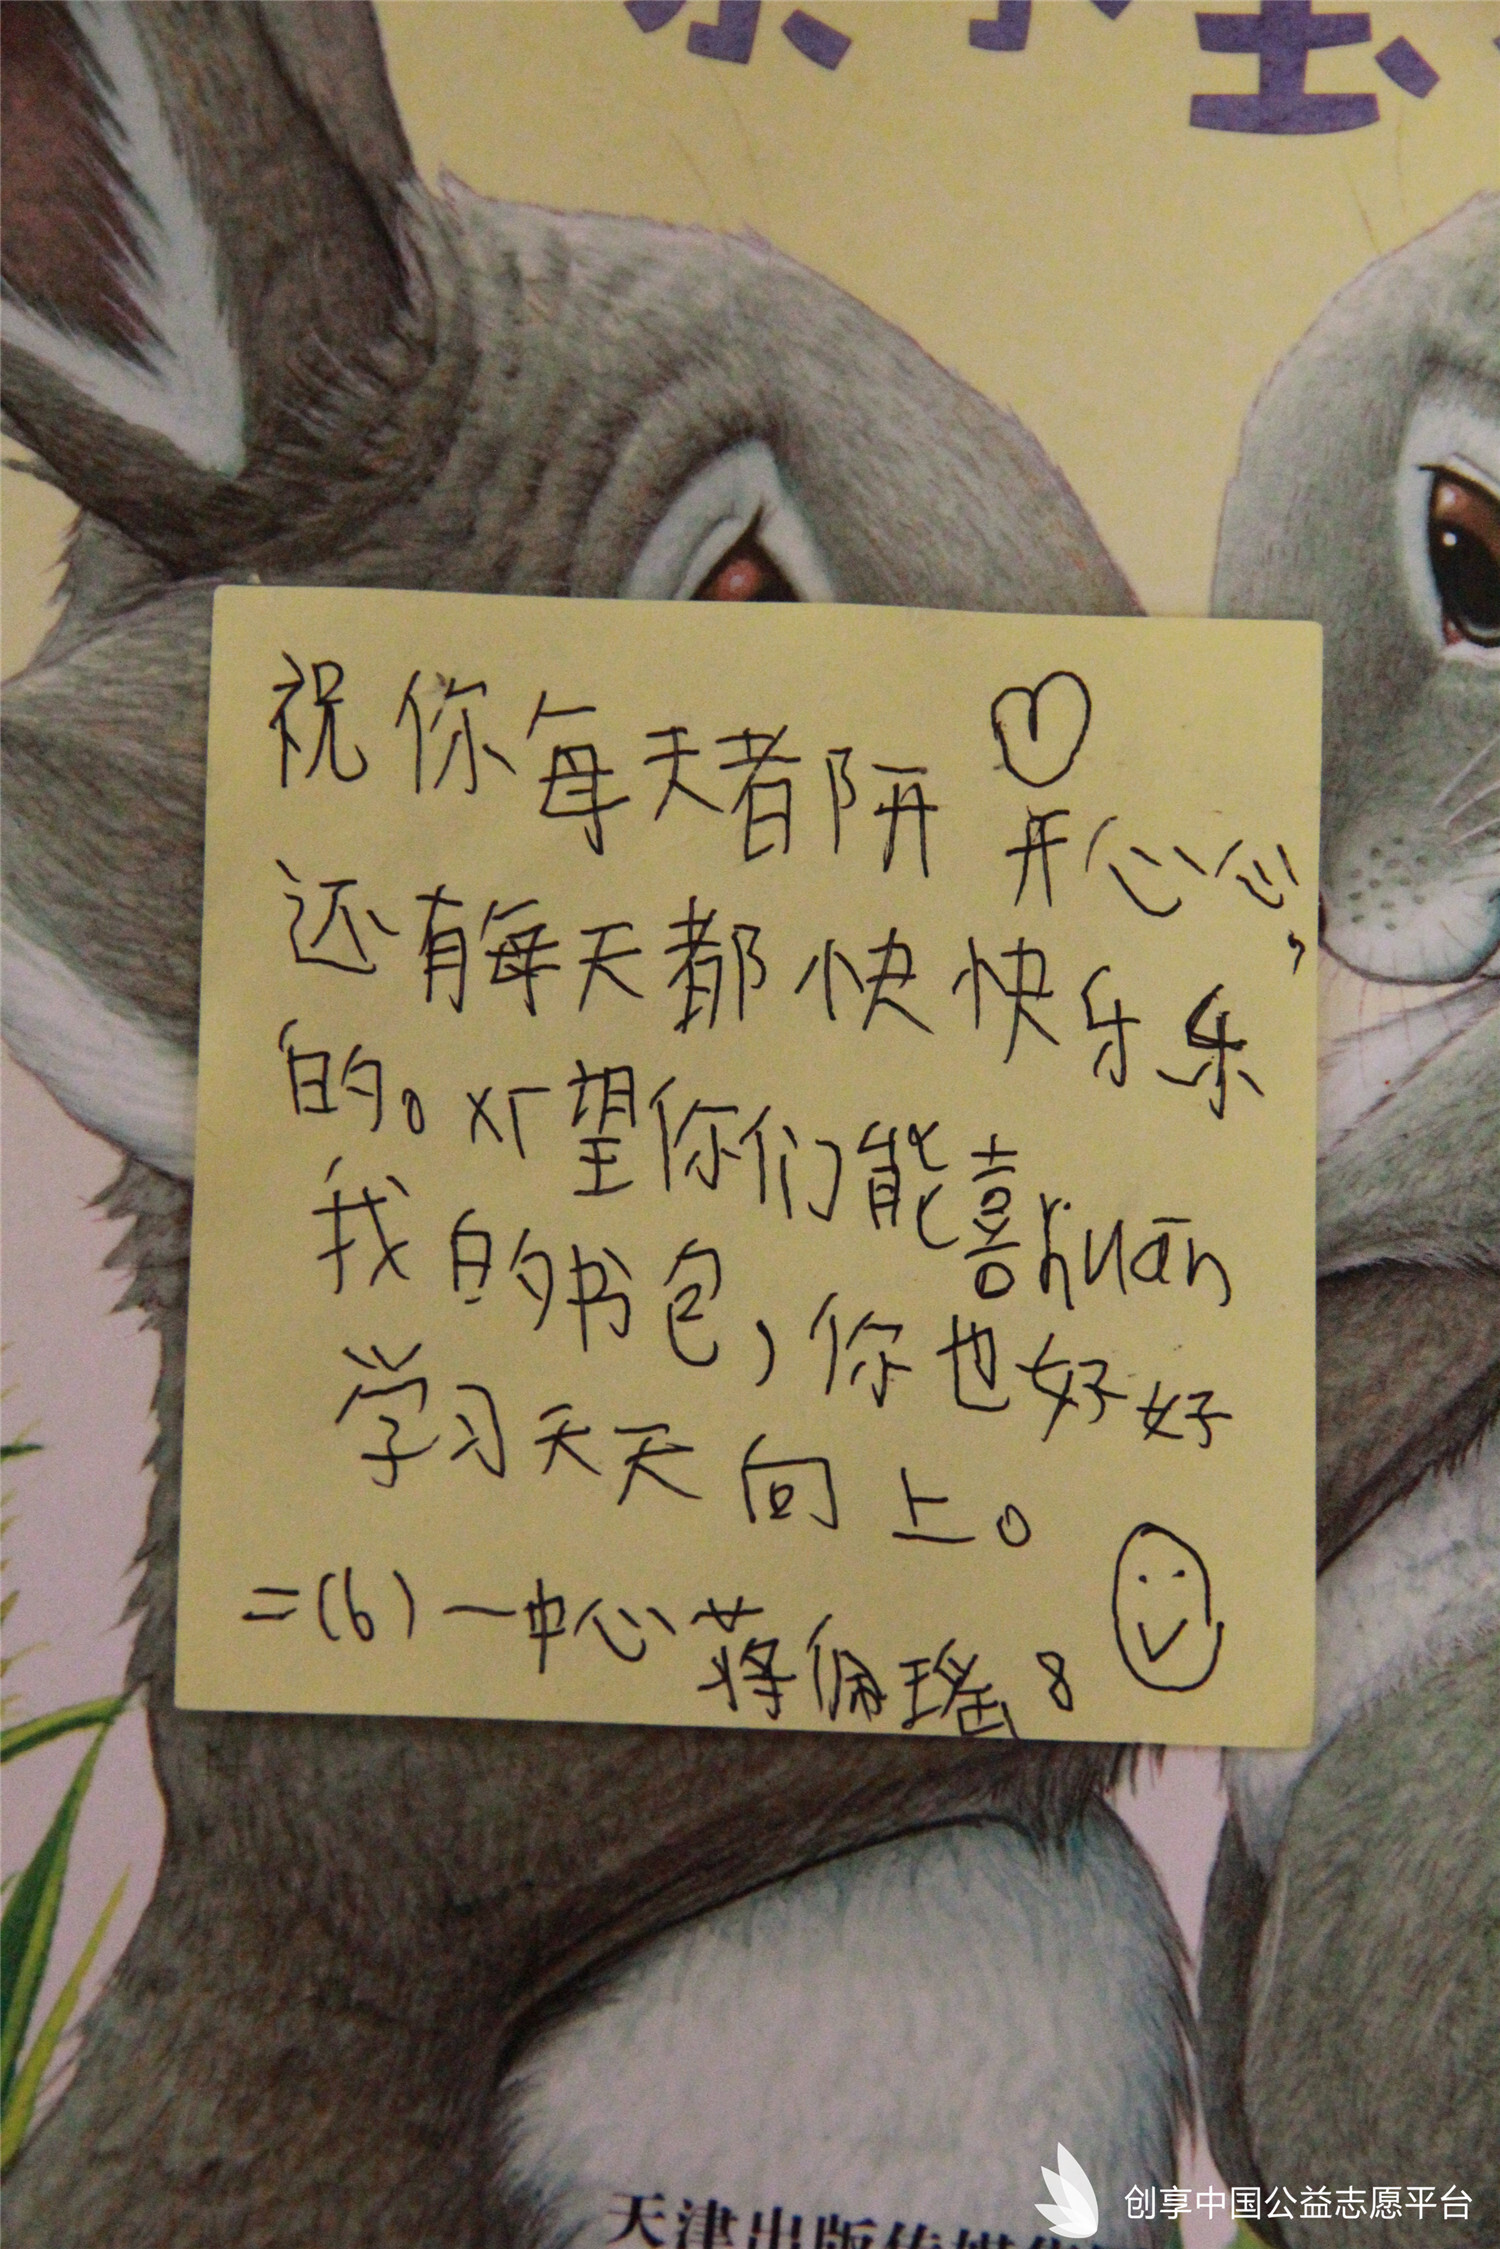 祝你每天都开开心心，
还有每天都快快乐乐
的。希望你们能喜huān
我的书包，你也好好
学习天天向上。
二(6)一中心蒋佩瑶 8
天津出版传媒
创享中国公益志愿平台